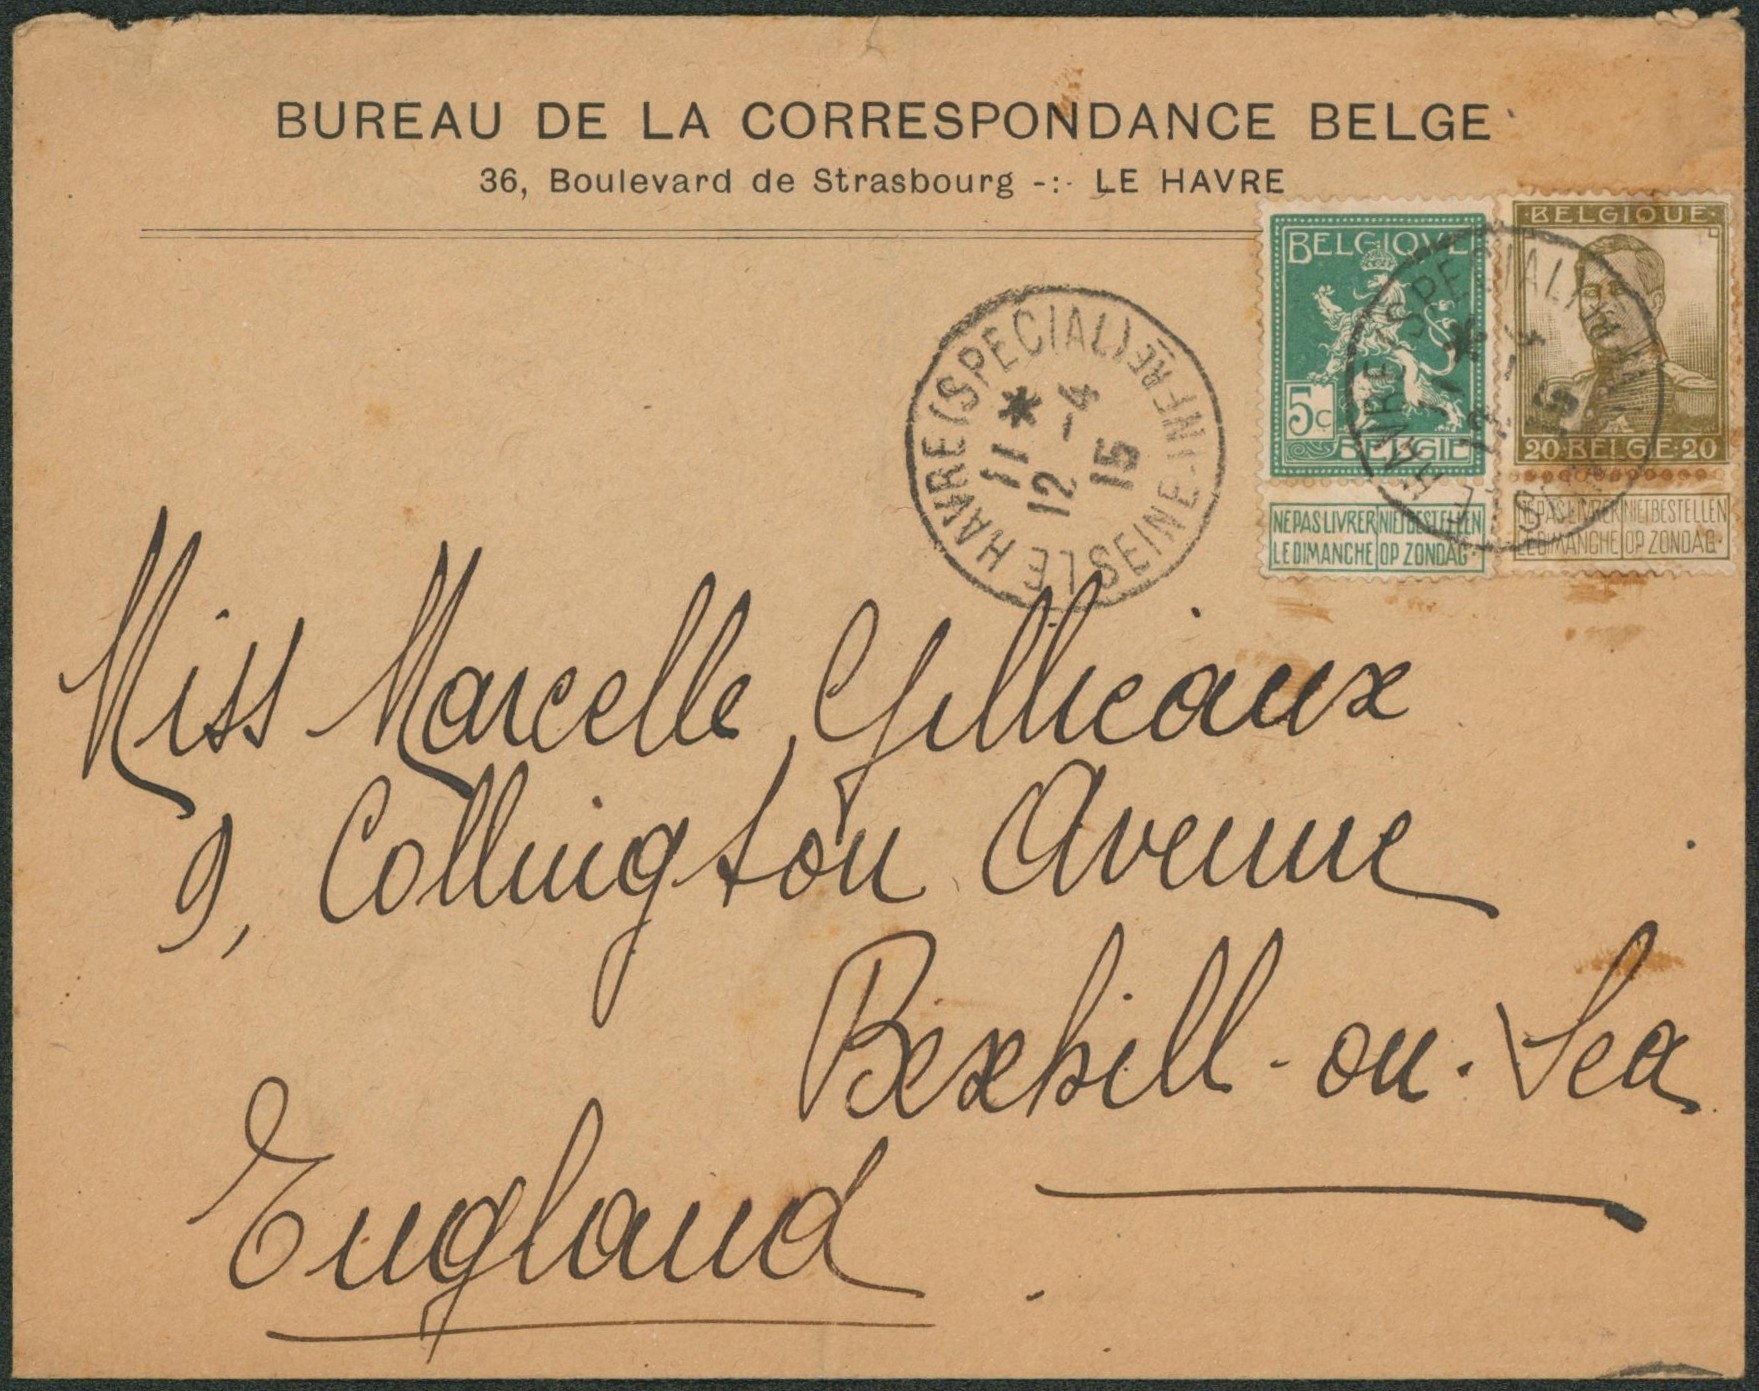 BUREAU DE LA CORRESPONDANCE BELGE
36, Boulevard de Strasbourg -:- LE HAVRE
BELGIQUE
5c
BELGIË
NE PAS LIVRER LE DIMANCHE
NIET BESTELLEN OP ZONDAG
BELGIQUE
20 BELGIE 20
NE PAS LIVRER LE DIMANCHE
NIET BESTELLEN OP ZONDAG
LE HAVRE (SPECIAL)
SEINE-INFRE
11 *
12 -4
15
Miss Marcelle Gillieaux
9, Collington Avenue
Bexhill-on-Sea
England